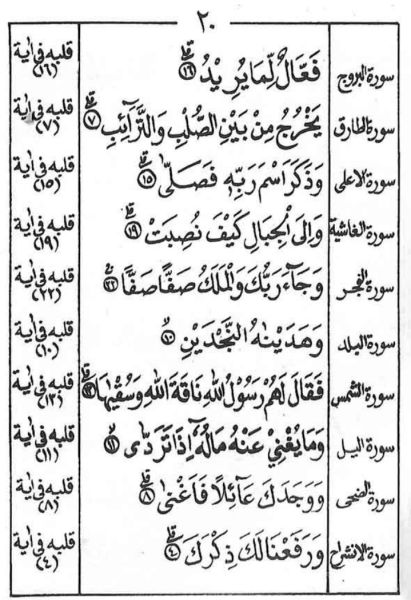 ٢٠
سورة البروج فَعَّالٌ لِّمَا يُرِيْدُ ﴿١٦﴾ قلبه فى اية (١٦)
سورة الطارق يَخْرُجُ مِنْ بَيْنِ الصُّلْبِ وَالتَّرَآئِبِ ﴿٧﴾ قلبه فى اية (٧)
سورة الاعلى وَذَكَرَ اسْمَ رَبِّهٖ فَصَلّٰى ﴿١٥﴾ قلبه فى اية (١٥)
سورة الغاشية وَاِلَى الْجِبَالِ كَيْفَ نُصِبَتْ ﴿١٩﴾ قلبه فى اية (١٩)
سورة الفجر وَجَآءَ رَبُّكَ وَالْمَلَكُ صَفًّا صَفًّا ﴿٢٢﴾ قلبه فى اية (٢٢)
سورة البلد وَهَدَيْنٰهُ النَّجْدَيْنِ ﴿١٠﴾ قلبه فى اية (١٠)
سورة الشمس فَقَالَ لَهُمْ رَسُوْلُ اللّٰهِ نَاقَةَ اللّٰهِ وَسُقْيٰهَا ﴿١٣﴾ قلبه فى اية (١٣)
سورة اليل وَمَا يُغْنِيْ عَنْهُ مَالُهٗ اِذَا تَرَدّٰى ﴿١١﴾ قلبه فى اية (١١)
سورة الضحى وَوَجَدَكَ عَآئِلًا فَاَغْنٰى ﴿٨﴾ قلبه فى اية (٨)
سورة الانشراح وَرَفَعْنَا لَكَ ذِكْرَكَ ﴿٤﴾ قلبه فى اية (٤)